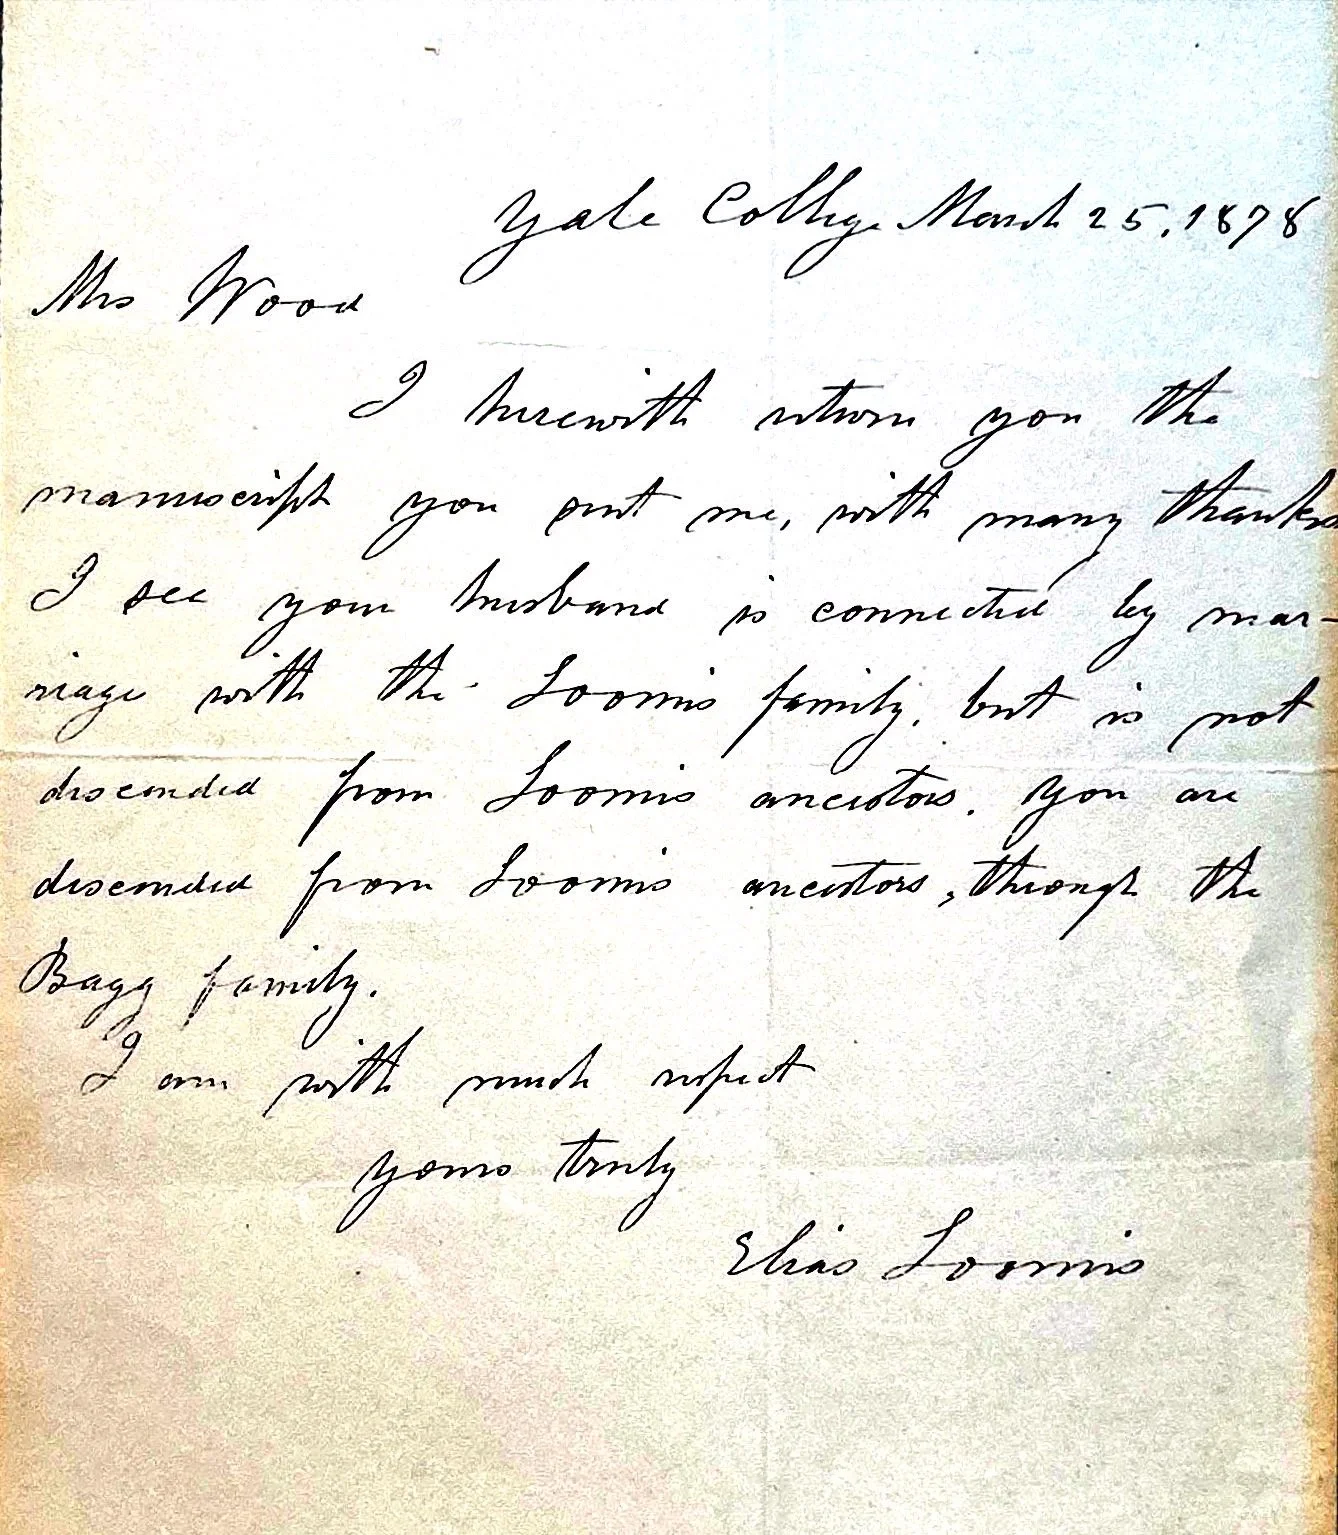 Yale College March 25, 1878
Mrs Wood
I herewith return you the
manuscript you sent me, with many thanks
I see your husband is connected by mar-
riage with the Loomis family, but is not
descended from Loomis ancestors. You are
descended from Loomis ancestors, through the
Bagg family.
I am with much respect
yours truly
Elias Loomis